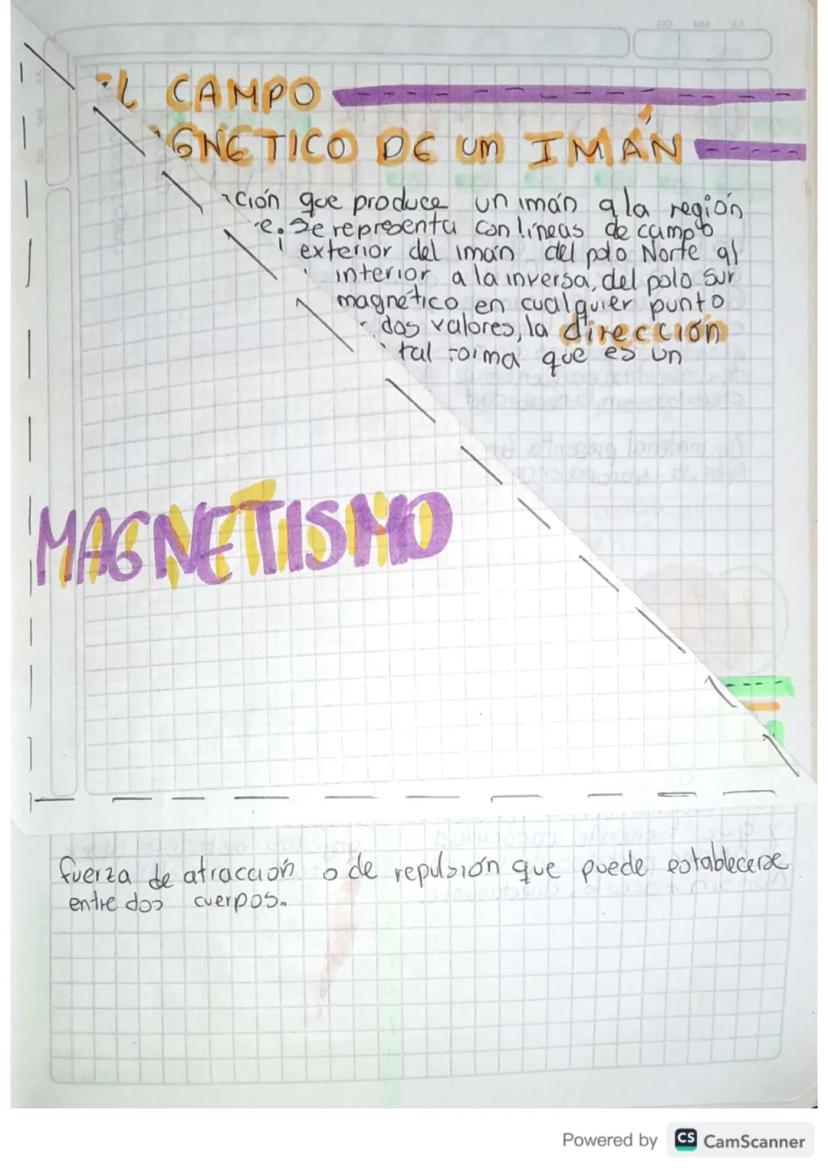 EL CAMPO
GNETICO DE UN IMÁN
ción que produce un imán a la región
e. Se representa con líneas de campo
exterior del imán del polo Norte al
interior a la inversa, del polo sur
magnético en cualquier punto
dos valores, la dirección
tal forma que es un
MAGNETISMO
fuerza de atracción o de repulsión que puede establecerse
entre dos cuerpos.
Powered by CS CamScanner